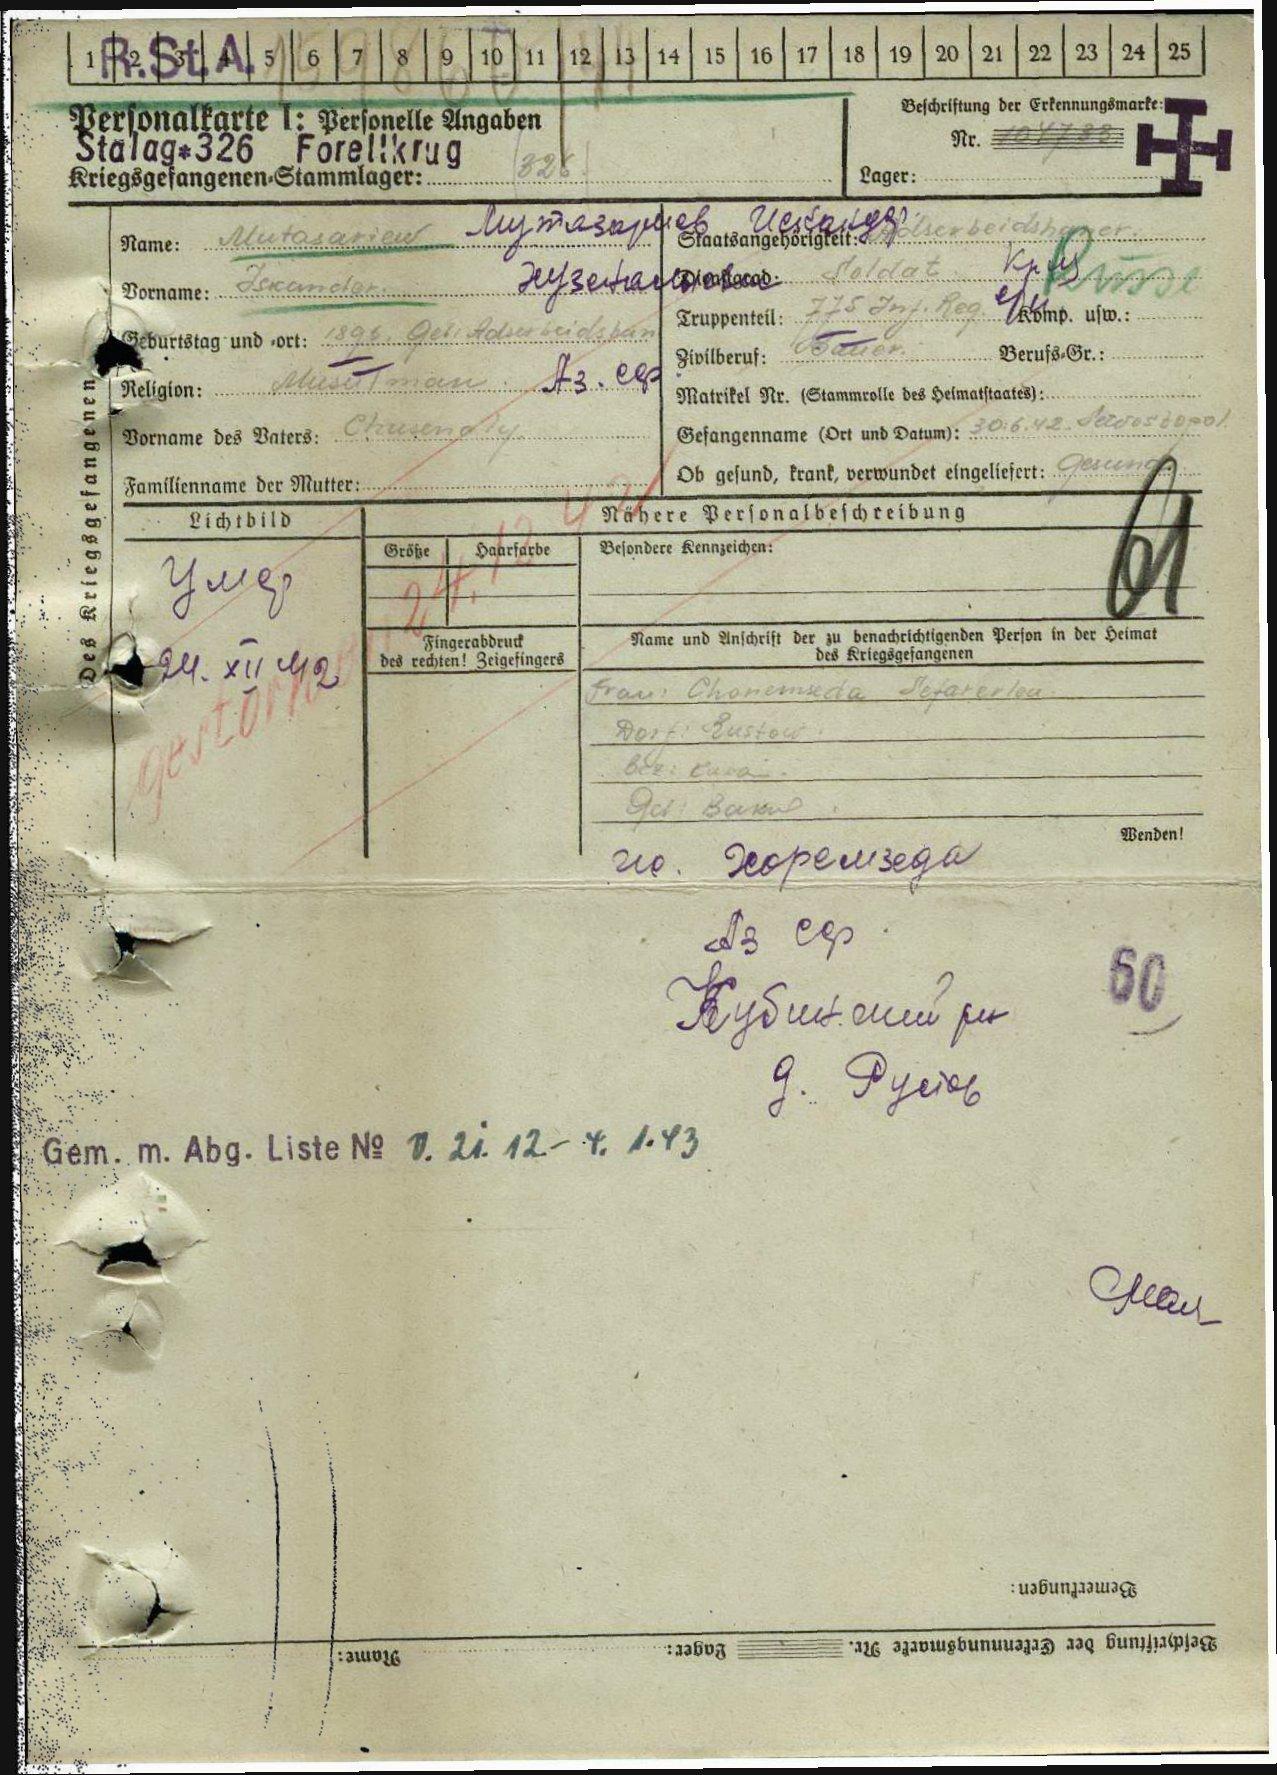 1 2 3 4 5 6 7 8 9 10 11 12 13 14 15 16 17 18 19 20 21 22 23 24 25
R.St.A.
Personalkarte I: Personelle Angaben
Stalag*326 Forellkrug
Kriegsgefangenen-Stammlager: 326
Beschriftung der Erkennungsmarke:
Nr. 104738
Lager:
Des Kriegsgefangenen
Name: Mutasariew
Мутазариев Искандер
Vorname: Iskander
Geburtstag und -ort: 1896. Adserbeidshan
Religion: Musulman
Аз. сср
Vorname des Vaters: Chusenaly
Familienname der Mutter:
Staatsangehörigkeit: Adserbeidshaner.
Russe
Dienstgrad: Soldat
Кр-ц
Truppenteil: 775 Inf. Reg. Komp. usw.:
Zivilberuf: Bauer. Berufs-Gr.:
Matrikel Nr. (Stammrolle des Heimatstaates):
Gefangennahme (Ort und Datum): 30.6.42. Sewostopol
Ob gesund, krank, verwundet eingeliefert: Gesund
Lichtbild
Умер
24. XII 42
gestorben 24.12.42
Nähere Personalbeschreibung
Größe Haarfarbe
Besondere Kennzeichen:
61
Fingerabdruck
des rechten! Zeigefingers
Name und Anschrift der zu benachrichtigenden Person in der Heimat
des Kriegsgefangenen
Frau: Choremseda
Dorf: Rustow
Bez: Kuba
Geb: Baku
Wenden!
Хоремзеда
Аз сср
Кубинский рн
д. Рустов
60
Gem. m. Abg. Liste № v. 21. 12 - 4. 1. 43
Bemerkungen:
Beschriftung der Erkennungsmarke Nr. Lager: Name: